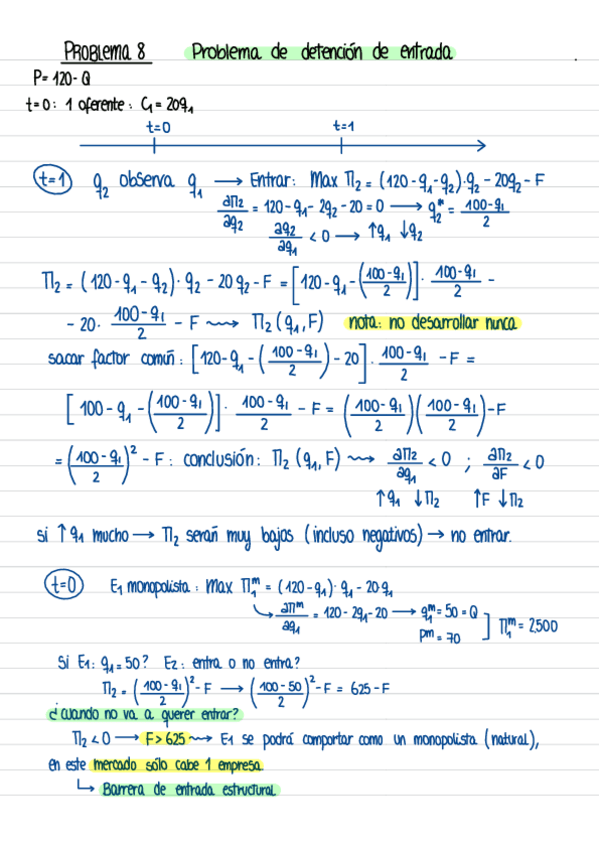 PROBLEMA 8 Problema de detención de entrada
P = 120 - Q
t=0: 1 oferente: C₁ = 20q₁
t=0 t=1
t=1 q₂ observa q₁ → Entrar: Max Π₂ = (120 - q₁ - q₂)·q₂ - 20q₂ - F
∂Π₂/∂q₂ = 120 - q₁ - 2q₂ - 20 = 0 → q₂* = (100 - q₁)/2
∂q₂/∂q₁ < 0 → ↑q₁ ↓q₂
Π₂ = (120 - q₁ - q₂)·q₂ - 20q₂ - F = [120 - q₁ - ((100 - q₁)/2)]·(100 - q₁)/2 -
- 20·(100 - q₁)/2 - F ⇝ Π₂(q₁, F) nota: no desarrollar nunca
sacar factor común: [120 - q₁ - ((100 - q₁)/2) - 20]·(100 - q₁)/2 - F =
[100 - q₁ - ((100 - q₁)/2)]·(100 - q₁)/2 - F = ((100 - q₁)/2)((100 - q₁)/2) - F
= ((100 - q₁)/2)² - F: conclusión: Π₂(q₁, F) ⇝ ∂Π₂/∂q₁ < 0 ; ∂Π₂/∂F < 0
↑q₁ ↓Π₂ ↑F ↓Π₂
si ↑q₁ mucho → Π₂ serán muy bajos (incluso negativos) → no entrar.
t=0 E₁ monopolista: Max Π₁ᵐ = (120 - q₁)·q₁ - 20q₁
↳ ∂Πᵐ/∂q₁ = 120 - 2q₁ - 20 → q₁ᵐ = 50 = Q
pm = 70 ] Π₁ᵐ = 2.500
Si E₁: q₁ = 50? E₂: entra o no entra?
Π₂ = ((100 - q₁)/2)² - F → ((100 - 50)/2)² - F = 625 - F
¿cuando no va a querer entrar?
Π₂ < 0 → F > 625 ⇝ E₁ se podrá comportar como un monopolista (natural),
en este mercado sólo cabe 1 empresa.
↳ Barrera de entrada estructural